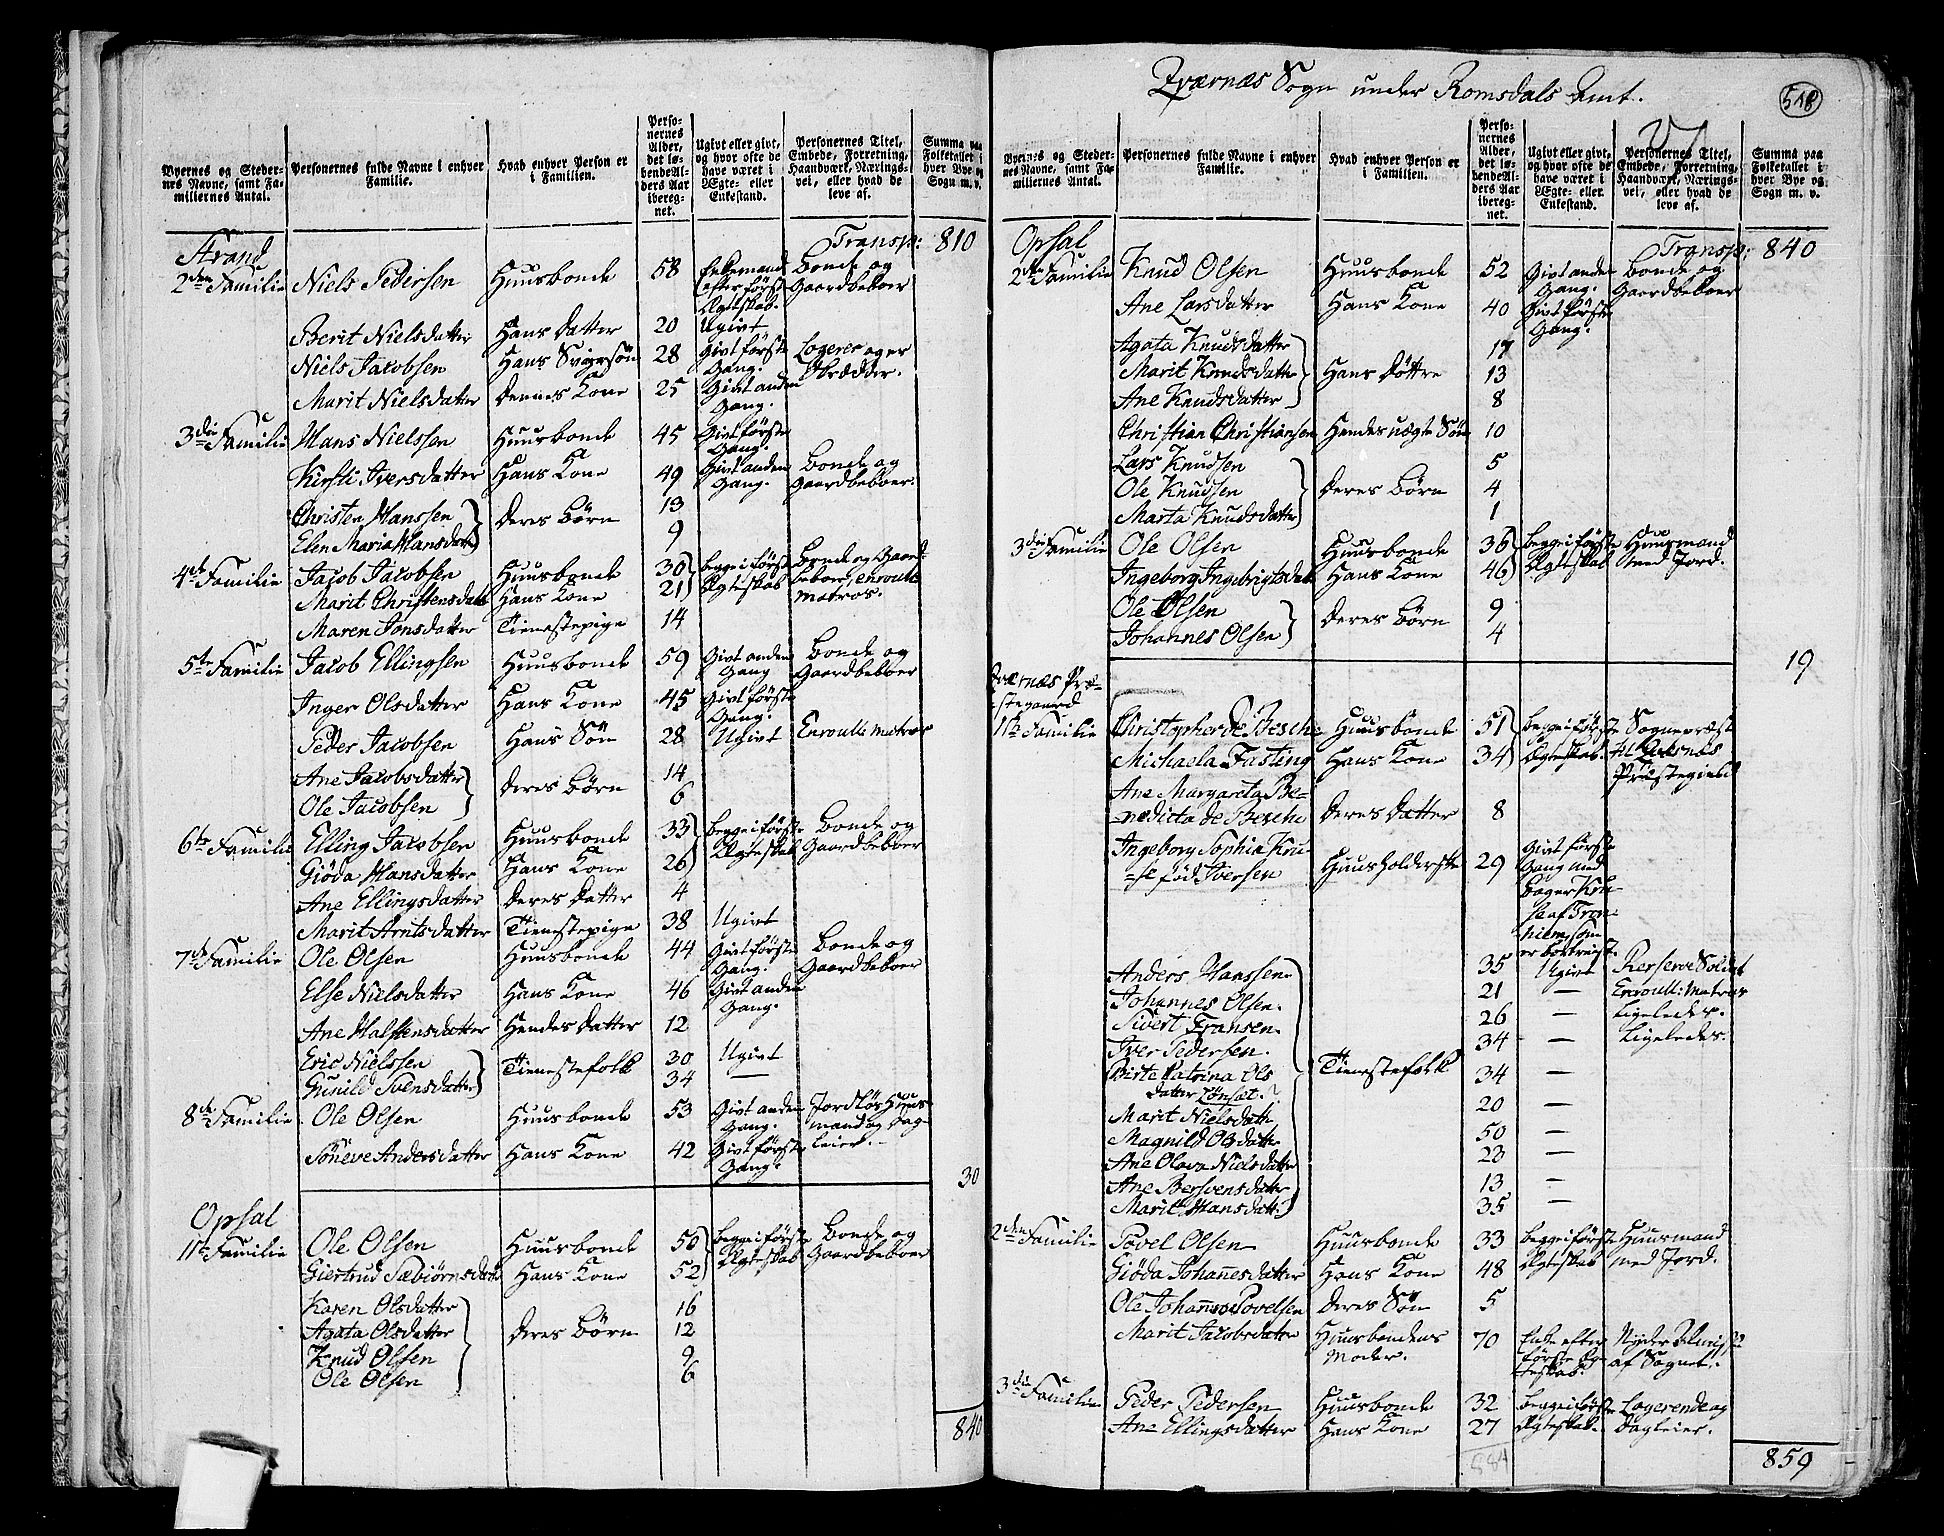 Qværnæs Sogn under Romsdals Amt.
518
Byernes og Stedernes Navne, samt Familiernes Antal. | Personernes fulde Navne i enhver Familie. | Hvad enhver Person er i Familien. | Personernes Alder, det løbende Alders Aar iberegnet. | Ugivt eller givt, og hvor ofte de have været i Ægte- eller Enkestand. | Personernes Titel, Embede, Forretning, Haandværk, Næringsvei, eller hvad de leve af. | Summa paa Folketallet i hver Bye og Sogn m. v.
Strand | Transp: 810
2den Familie | Niels Pedersen | Huusbonde | 58 | Enkemand efter første Ægteskab. | Bonde og Gaardbeboer
Berit Nielsdatter | Hans datter | 20 | Ugivt
Niels Jacobsen | Hans Svigersøn | 28 | Givt første Gang. | Logerer og er Obrædder.
Marit Nielsdatter | Dennes Kone | 25 | Givt anden Gang.
3die Familie | Hans Nielssen | Huusbonde | 45 | Givt første Gang.
Kirsti Iversdatter | Hans Kone | 49 | Givt anden Gang. | Bonde og Gaardbeboer.
Christen Hanssen | Deres Børn | 13
Elen Maria Hansdatter | 9
4de Familie | Jacob Jacobsen | Huusbonde | 30 | Begge i første Ægteskab | Bonde og Gaardbeboer, enroult matros.
Marit Christensdatt | Hans Kone | 21
Maren Jonsdatter | Tienestepige | 14
5te Familie | Jacob Ellingsen | Huusbonde | 59 | Givt anden Gang | Bonde og Gaardbeboer
Inger Olsdatter | Hans Kone | 45 | Givt første Gang.
Peder Jacobsen | Hans Søn | 28 | Ugivt | Enroull: matros
Ane Jacobsdatter | Deres Børn | 14
Ole Jacobsen | 6
6te Familie | Elling Jacobsen | Huusbonde | 33 | Begge i første Ægteskab | Bonde og Gaardbeboer
Giöda Hansdatter | Hans Kone | 26
Ane Ellingsdatter | Deres Datter | 4
Marit Arntsdatter | Tienestepige | 38 | Ugivt
7de Familie | Ole Olsen | Huusbonde | 44 | Givt første Gang. | Bonde og Gaardbeboer
Else Nielsdatter | Hans Kone | 46 | Givt anden Gang.
Ane Halstensdatter | Hendes Datter | 12
Eric Nielssen | Tienestefolk | 30 | Ugivt
Gunild Svensdatter | 34 | —
8de Familie | Ole Olsen | Huusbonde | 53 | Givt anden Gang. | Jordløs Huusmand og Dagleier.
Söneve Andersdatter | Hans Kone | 42 | Givt første Gang.
30
Opsal
1ste Familie | Ole Olsen | Huusbonde | 50 | Begge i første Ægteskab | Bonde og Gaardbeboer
Giertrud Sæbiörnsdatt | Hans Kone | 52
Karen Olsdatter | Deres Børn | 16
Agata Olsdatter | 12
Knud Olsen | 9
Ole Olsen | 6
840
Byernes og Stedernes Navne, samt Familiernes Antal. | Personernes fulde Navne i enhver Familie. | Hvad enhver Person er i Familien. | Personernes Alder, det løbende Alders Aar iberegnet. | Ugivt eller givt, og hvor ofte de have været i Ægte- eller Enkestand. | Personernes Titel, Embede, Forretning, Haandværk, Næringsvei, eller hvad de leve af. | Summa paa Folketallet i hver Bye og Sogn m. v.
Opsal | Transp: 840
2den Familie | Knud Olsen | Huusbonde | 52 | Givt anden Gang. | Bonde og Gaardbeboer
Ane Larsdatter | Hans Kone | 40 | Givt første Gang.
Agata Knudsdatter | Hans Døttre | 17
Marit Knudsdatter | 13
Ane Knudsdatter | 8
Christian Christiansen | Hendes uægte Søn | 10
Lars Knudsen | Deres Børn | 5
Ole Knudsen | 4
Marta Knudsdatter | 1
3die Familie | Ole Olsen | Huusbonde | 36 | Begge i første Ægteskab | Huusmand med Jord.
Ingeborg Ingebrigtsdatt | Hans Kone | 46
Ole Olsen | Deres Børn | 9
Johannes Olsen | 4
19
Qværnæs Præstegaard
1ste Familie | Christopher de Besche | Huusbonde | 51 | Begge i første Ægteskab. | Sognepræst til Qværnæs Præstegield
Michaela Fasting | Hans Kone | 34
Ane Margareta Benedicta de Besche | Deres Datter | 8
Ingeborg Sophia Kruse fød Iversen | Huusholderske | 29 | Givt første Gang med Bager Kruse af Tronhiem, som er bortreist.
Anders Hanssen | Tienestefolk | 35 | Ugivt | Reserve Soldat
Johannes Olsen. | 21 | — | Enroull: matros
Sivert Fransen. | 26 | — | Ligeledes.
Iver Pedersen. | 34 | — | Ligeledes.
Birte Catrina Olsdatter Lönset. | 34 | —
Marit Nielsdatter | 20 | —
Magnild Olsdatter | 50 | —
Ane Olava Nielsdatter | 23 | —
Ane Bersvensdatter | 13 | —
Marit Hansdatt: | 35 | —
2den Familie | Povel Olsen | Huusbonde | 33 | Begge i første Ægteskab | Huusmand med Jord.
Giöda Johannesdatter | Hans Kone | 48
Ole Johannes Povelsen | Deres Søn | 5
Marit Jacobsdatter | Huusbondens Moder. | 70 | Enke efter første Ægteskab. | Nyder Almisse af Sognet.
3die Familie | Peder Pedersen | Huusbonde | 32 | Begge i første Ægteskab. | Logerende og Dagleier.
Ane Ellingsdatter | Hans Kone | 27
884
859